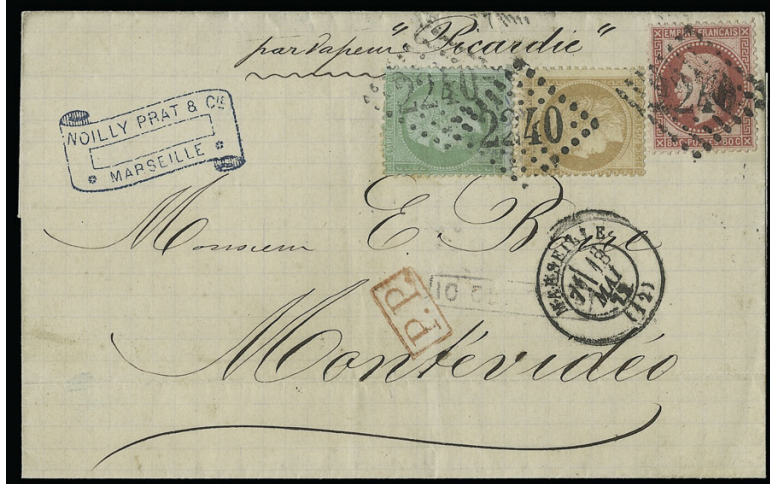 par vapeur "Picardie"
NOILLY PRAT & CIE
MARSEILLE
2240
2240
2240
EMPIRE FRANÇAIS
80C 80C
Monsieur E.
MARSEILLE
18
MAI
(12)
P.P.
Montévidéo